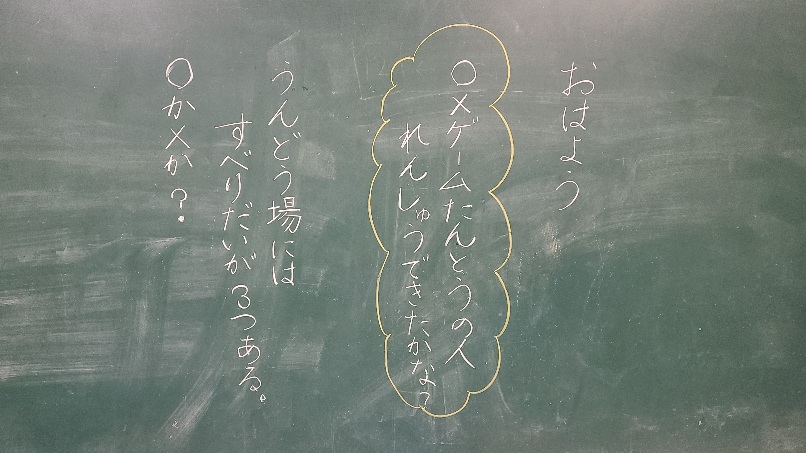 おはよう
〇×ゲームたんとうの人
れんしゅうできたかな?
うんどう場には
すべりだいが3つある。
〇か×か?